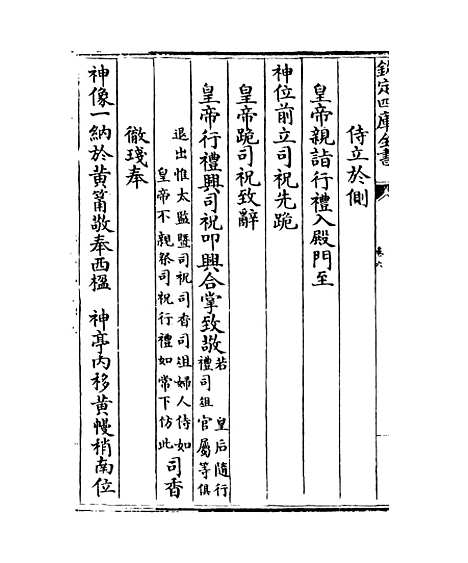 欽定四庫全書
卷六
侍立於側
皇帝親詣行禮入殿門至
神位前立司祝先跪
皇帝跪司祝致辭
皇帝行禮興司祝叩興合掌致敬若 皇后隨行
禮司俎官屬等俱
退出惟太監暨司祝司香司俎婦人侍如
皇帝不親祭司祝行禮如常下仿此
司香
徹琖奉
神像一納於黃筩敬奉西楹 神亭內移黃幔稍南位